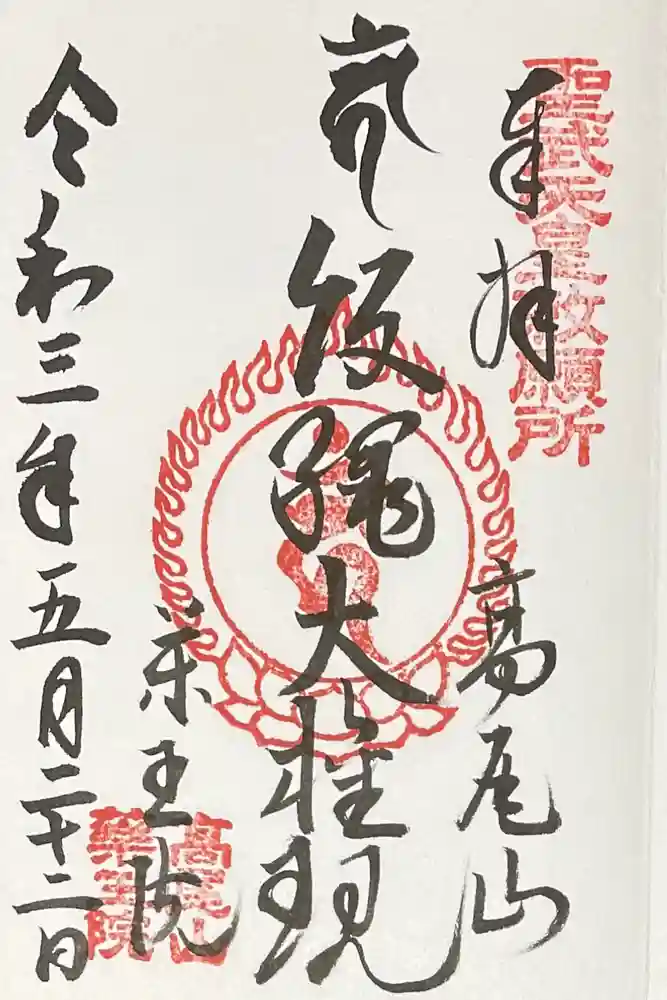 奉拝
聖武天皇敕願所
高尾山
飯縄大権現
薬王院
高尾山
薬王院
令和三年五月二十二日